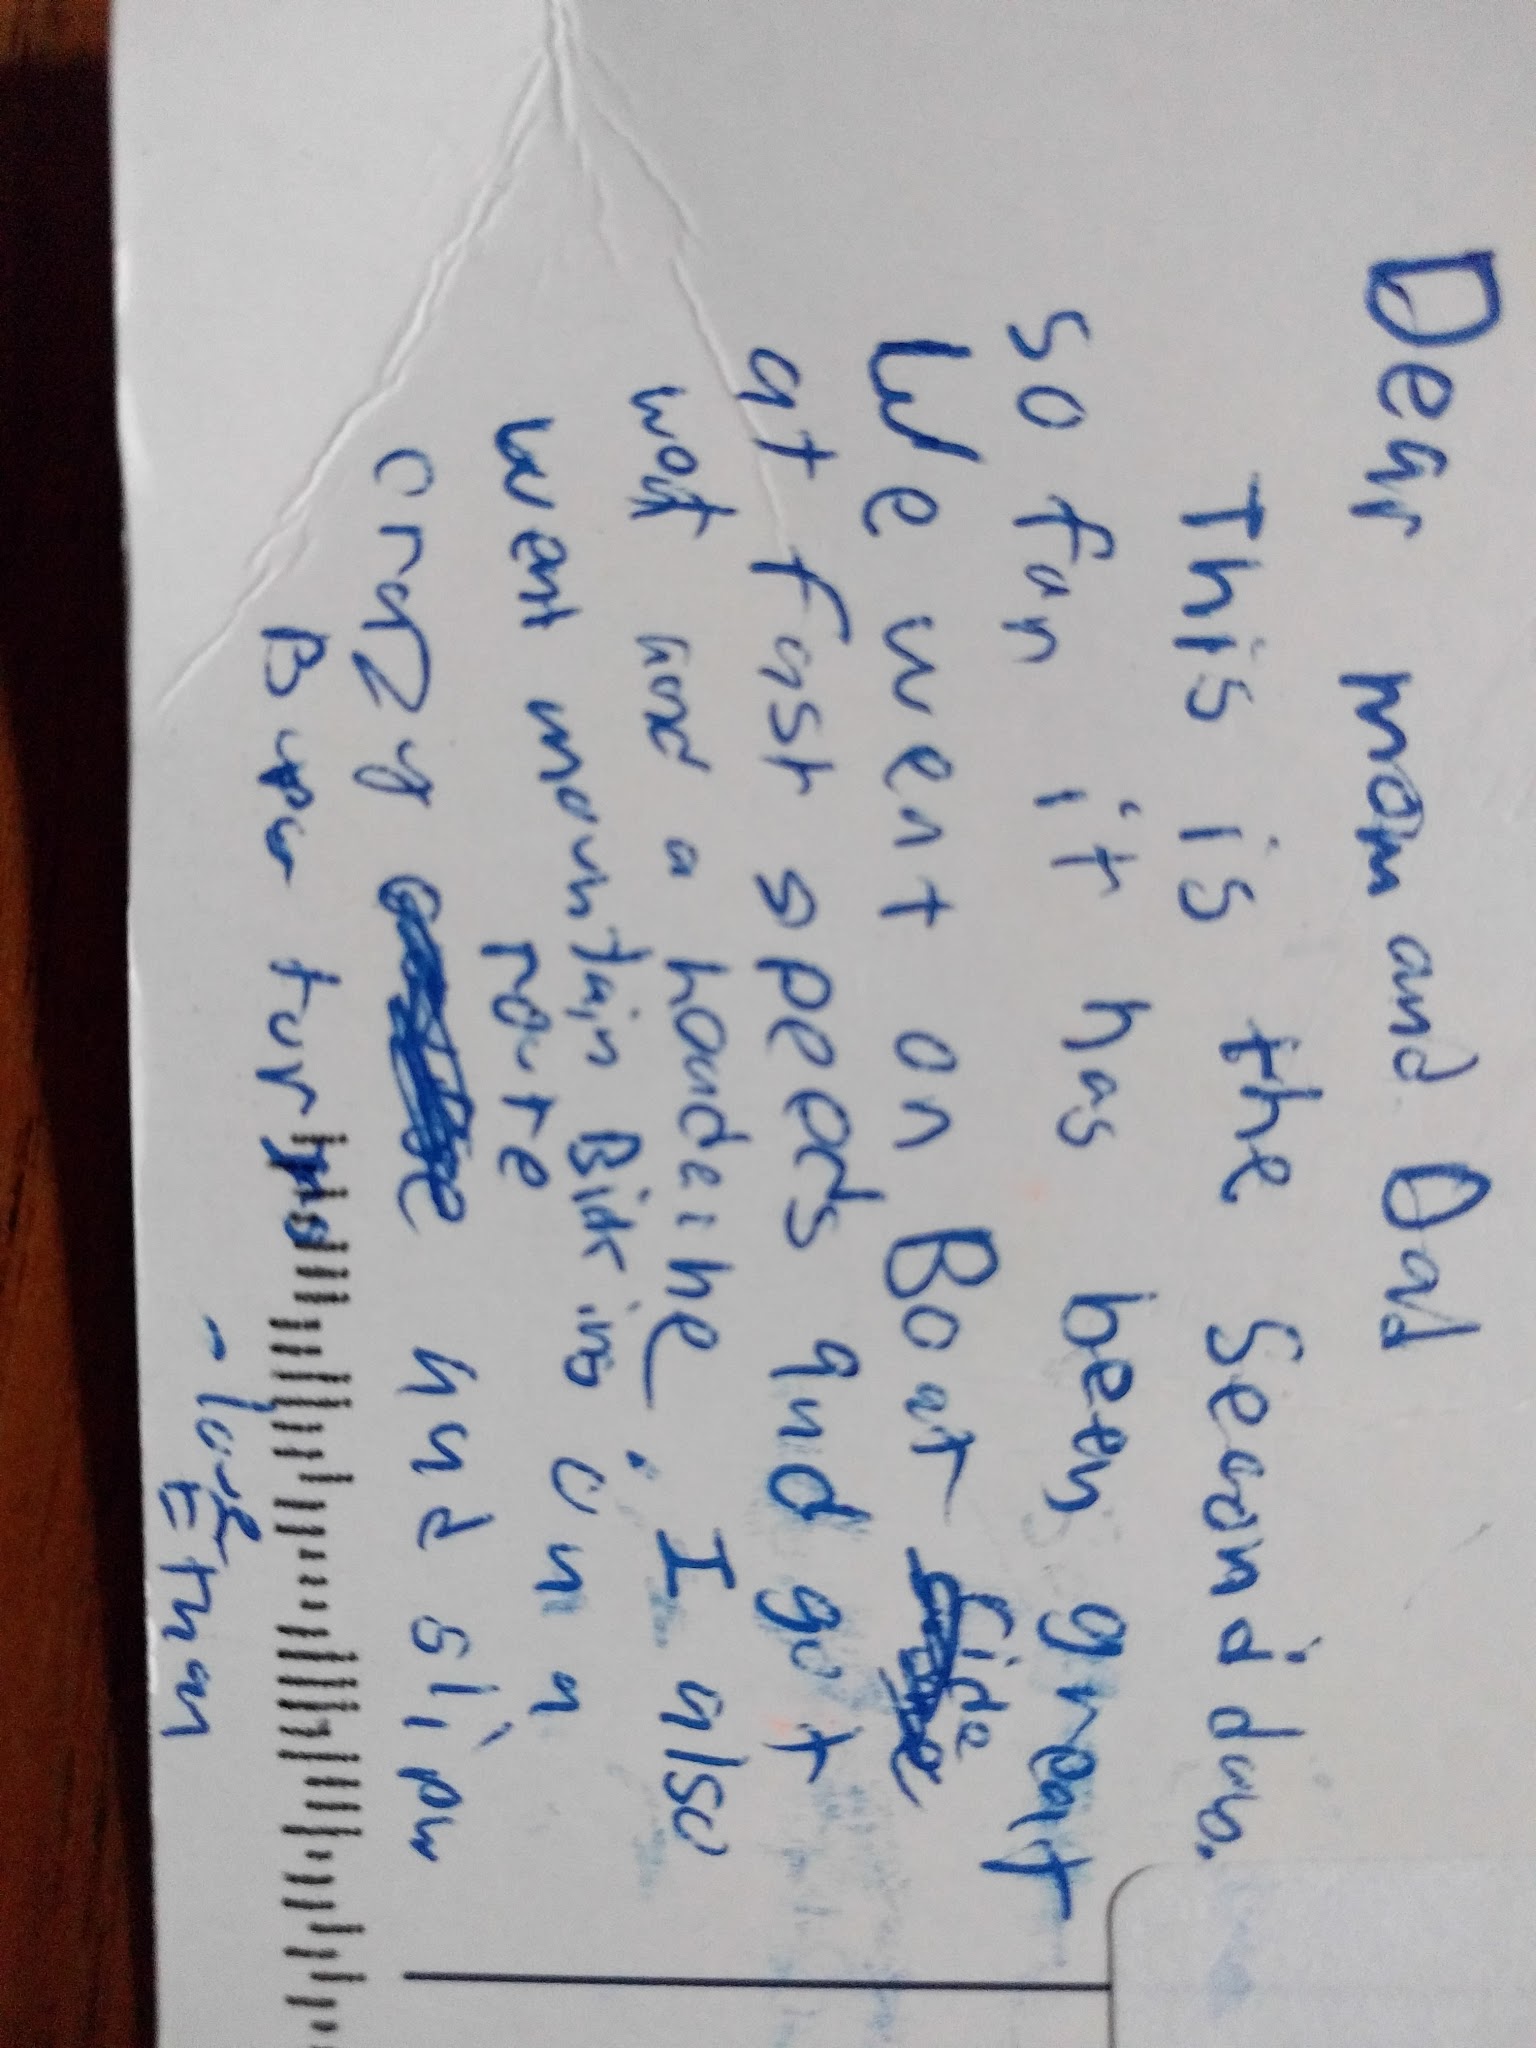 Dear mom and Dad
This is the Second day.
so far it has been great
We went on Boat Ride
at fast speeds and got
wet and a houdeihe. I also
went mountain Biking on a
route
crazy had slipu
Bupu turns
- love
Ethan